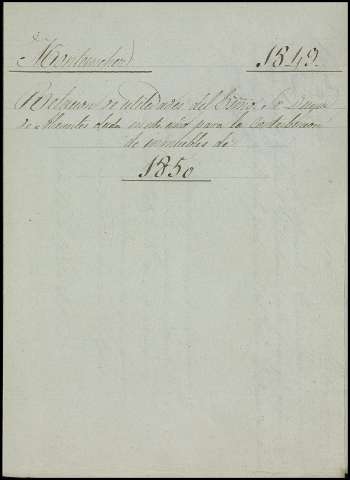 Montanchez 1849.
Relacion de utilidades del Exmo. Sr. Duque
de Abrantes dada en este año para la Contribucion
de inmuebles de
1850